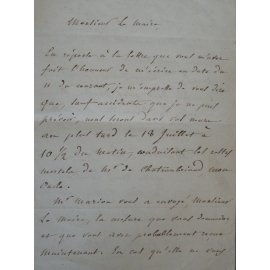 Monsieur Le Maire,
En réponse à la lettre que vous m'avez
fait l'honneur de m'écrire en date du
11 du courant, je m'empresse de vous dire
que, sauf accidents que je ne puis
prévoir, nous serons dans vos murs
au plus tard le 18 Juillet à
10 1/2 du matin, conduisant les restes
mortels de Mr de Chateaubriand mon
oncle.
Mr Marion vous a envoyé Monsieur
Le Maire, la mesure que vous demandez
et que vous avez probablement reçue
maintenant. En cas qu'elle ne vous